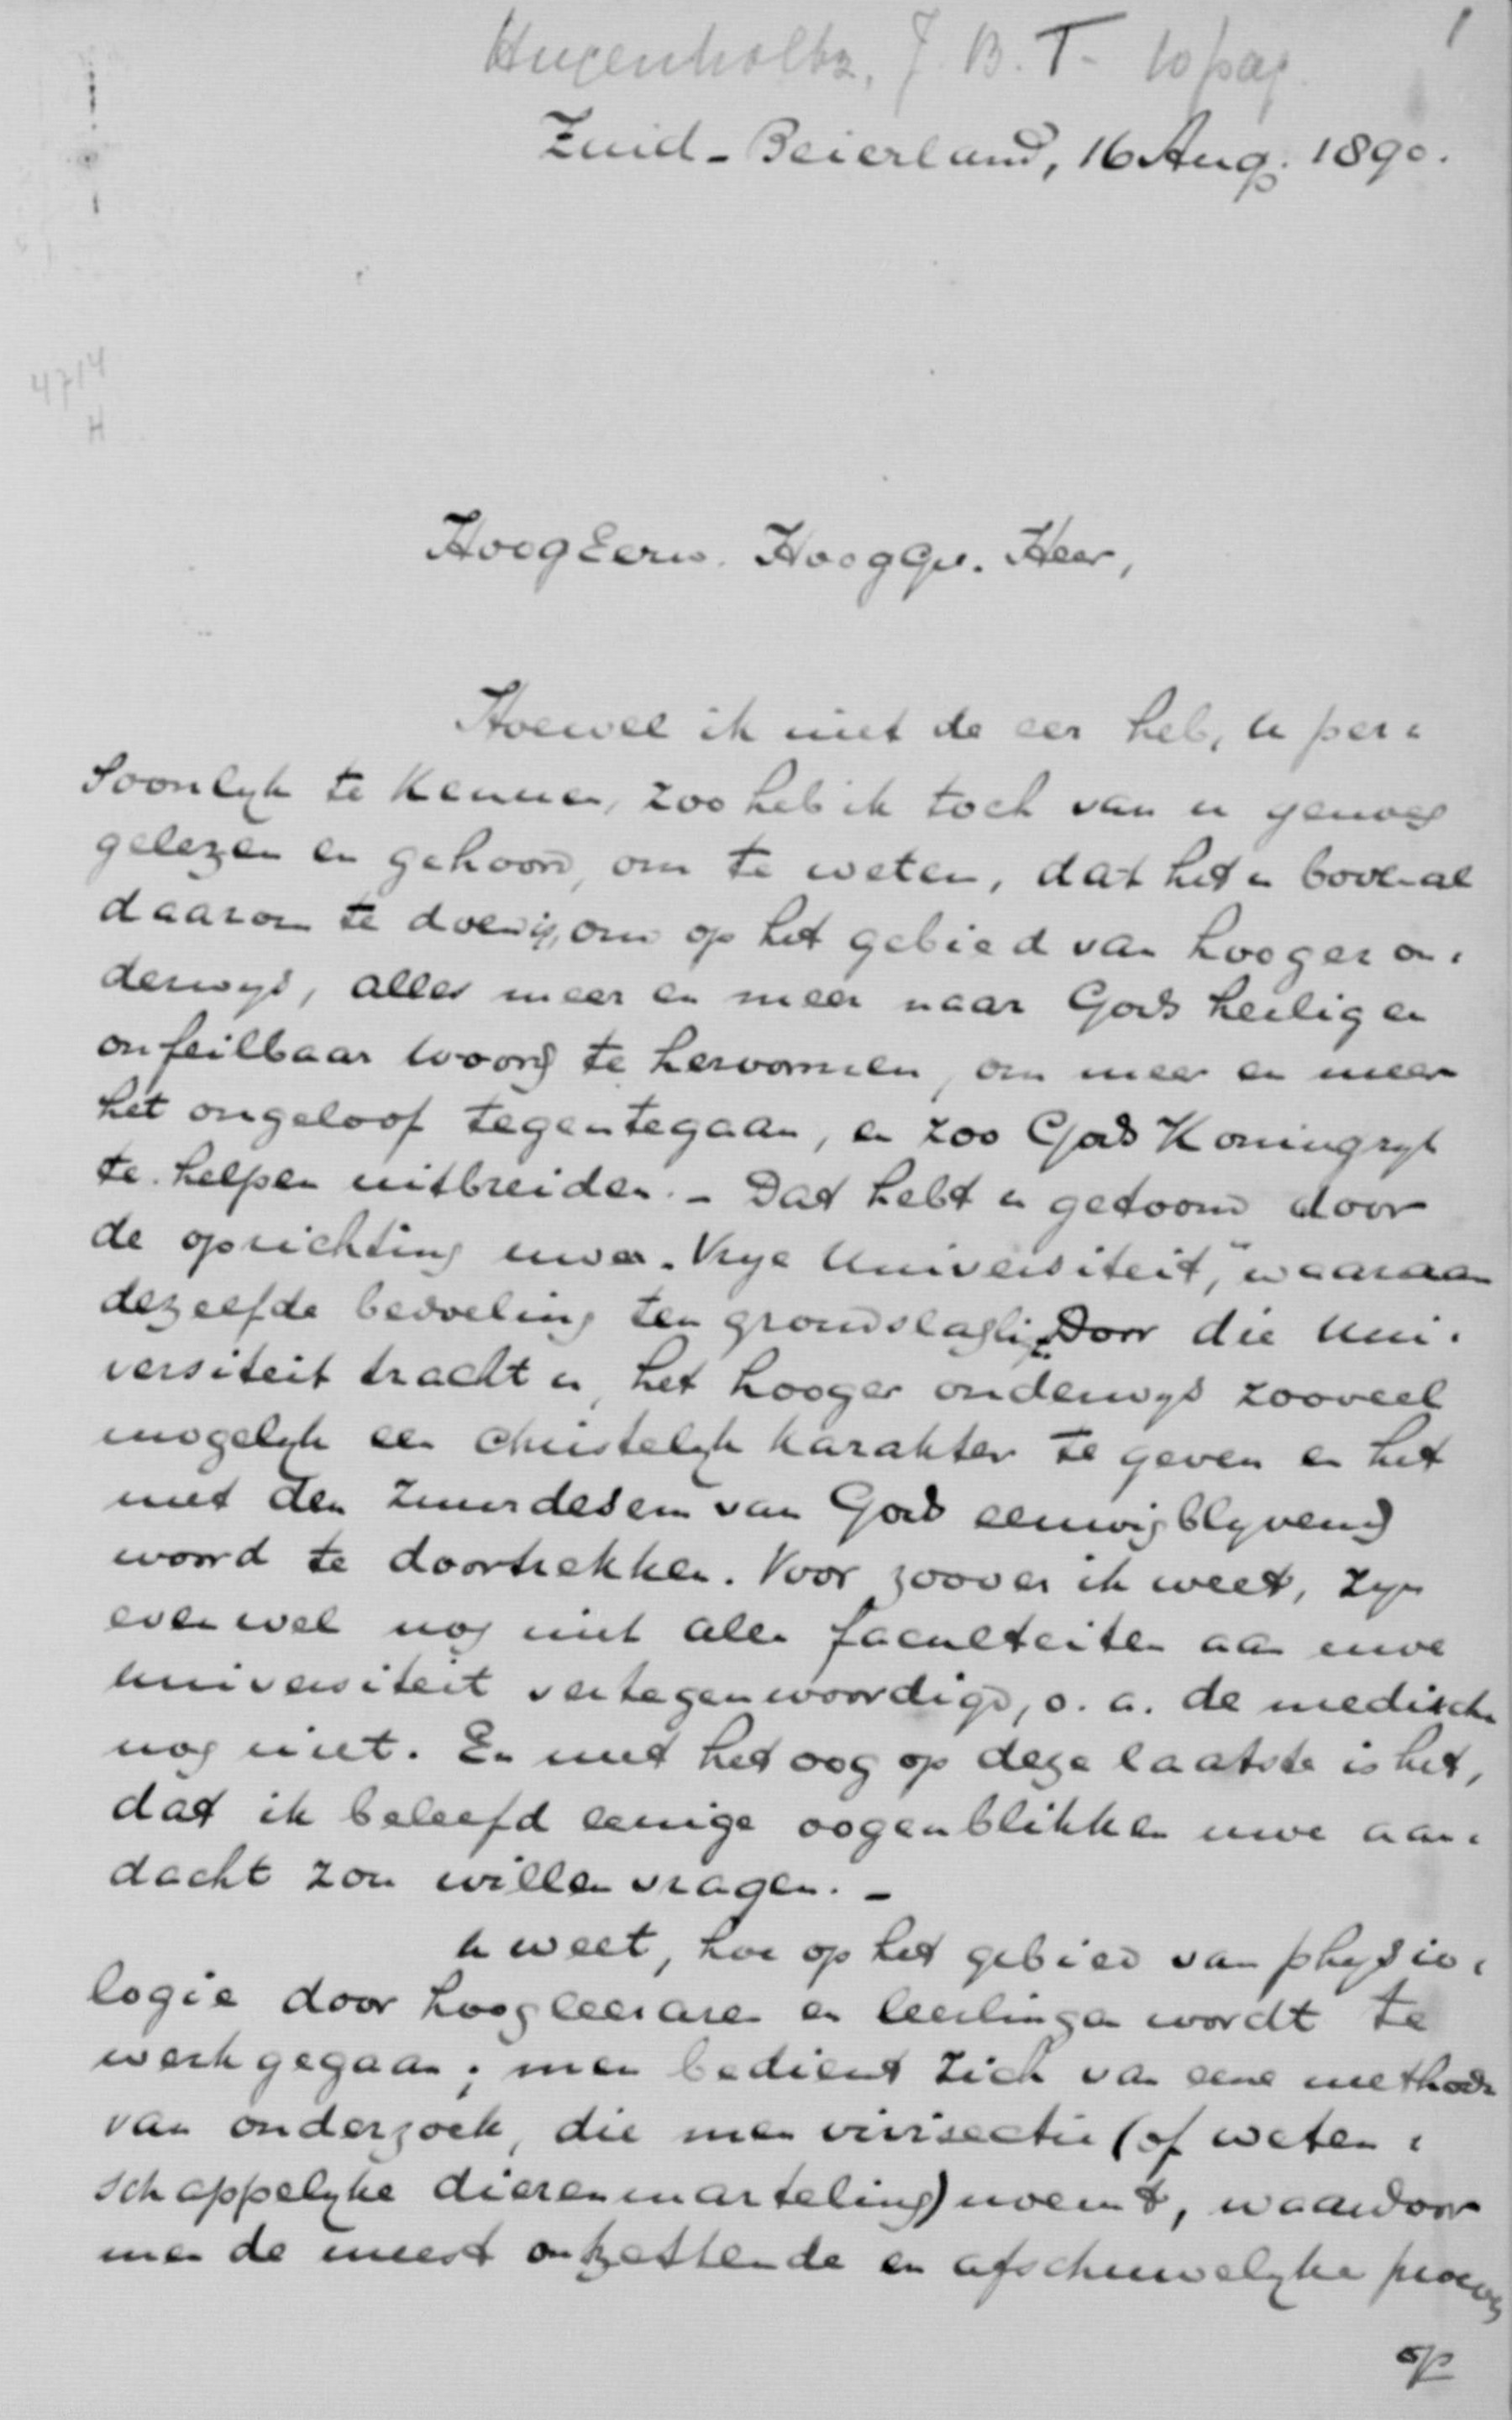 Hugenholtz, J. B. T. 10 pag. 1
Zuid-Beierland, 16 Aug. 1890.
4714
H
HoogEerw. HoogGel. Heer,
Hoewel ik niet de eer heb, u per-
soonlyk te kennen, zoo heb ik toch van u genoeg
gelezen en gehoord, om te weten, dat het u bovenal
daarom te doen is, om op het gebied van hooger on-
derwys, alles meer en meer naar Gods heilig en
onfeilbaar woord te hervormen, om meer en meer
het ongeloof tegentegaan, en zoo Gods Koningryk
te helpen uitbreiden. - Dat hebt u getoond door
de oprichting uwer "Vrye Universiteit," waaraan
dezelfde bedoeling ten grondslag lig. Door die Uni-
versiteit tracht u, het hooger onderwys zooveel
mogelyk een christelyk karakter te geven en het
met den zuurdesem van Gods eeuwigblyvend
woord te doortrekken. Voor zoover ik weet, zyn
evenwel nog niet alle faculteiten aan uwe
Universiteit vertegenwoordigd, o. a. de medische
nog niet. En met het oog op deze laatste is het,
dat ik beleefd eenige oogenblikken uwe aan-
dacht zou willen vragen. -
U weet, hoe op het gebied van physio-
logie door hoogleeraren en leerlingen wordt te
werk gegaan; men bedient zich van eene methode
van onderzoek, die men vivisectie (of weten-
schappelyke dierenmarteling) noemt, waardoor
men de meest ontzettende en afschuwelyke proeven
op